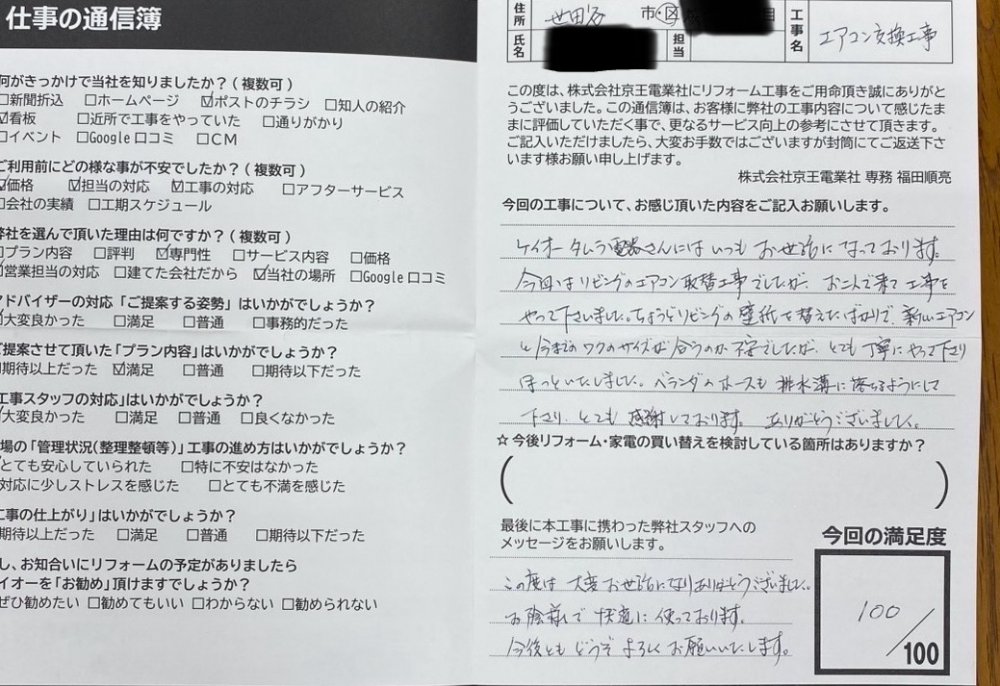 仕事の通信簿
何がきっかけで当社を知りましたか？(複数可)
□新聞折込 □ホームページ ☑ポストのチラシ □知人の紹介
☑看板 □近所で工事をやっていた □通りがかり
□イベント □Google口コミ □CM
ご利用前にどの様な事が不安でしたか？(複数可)
☑価格 ☑担当の対応 ☑工事の対応 □アフターサービス
□会社の実績 □工期スケジュール
弊社を選んで頂いた理由は何ですか？(複数可)
□プラン内容 □評判 ☑専門性 □サービス内容 □価格
営業担当の対応 □建てた会社だから ☑当社の場所 □Google口コミ
アドバイザーの対応「ご提案する姿勢」はいかがでしょうか？
大変良かった □満足 □普通 □事務的だった
ご提案させて頂いた「プラン内容」はいかがでしょうか？
期待以上だった ☑満足 □普通 □期待以下だった
工事スタッフの対応」はいかがでしょうか？
大変良かった □満足 □普通 □良くなかった
場の「管理状況(整理整頓等)」工事の進め方はいかがでしょうか？
とても安心していられた □特に不安はなかった
対応に少しストレスを感じた □とても不満を感じた
工事の仕上がり」はいかがでしょうか？
期待以上だった □満足 □普通 □期待以下だった
し、お知合いにリフォームの予定がありましたら
イオーを「お勧め」頂けますでしょうか？
ぜひ勧めたい □勧めてもいい □わからない □勧められない
住所 世田谷 市・区
氏名 担当
工事名 エアコン交換工事
この度は、株式会社京王電業社にリフォーム工事をご用命頂き誠にありがと
うございました。この通信簿は、お客様に弊社の工事内容について感じたま
まに評価していただく事で、更なるサービス向上の参考にさせて頂きます。
ご記入いただけましたら、大変お手数ではございますが封筒にてご返送下さ
います様お願い申し上げます。
株式会社京王電業社 専務 福田順亮
今回の工事について、お感じ頂いた内容をご記入お願いします。
ケイオータムラ電器さんにはいつもお世話になっております。
今回はリビングのエアコン取替工事でしたが、お二人で来て工事を
やって下さいました。ちょうどリビングの壁紙を替えたばかりで、新しいエアコン
と今までのワクのサイズが合うのか不安でしたが、とても丁寧にやって下さり
ほっといたしました。ベランダのホースも排水溝に落ちるようにして
下さり、とても感謝しております。ありがとうございました。
☆今後リフォーム・家電の買い替えを検討している箇所はありますか？
( )
最後に本工事に携わった弊社スタッフへの
メッセージをお願いします。
この度は大変お世話になりありがとうございました。
お陰様で快適に使っております。
今後ともどうぞよろしくお願いいたします。
今回の満足度
100/100